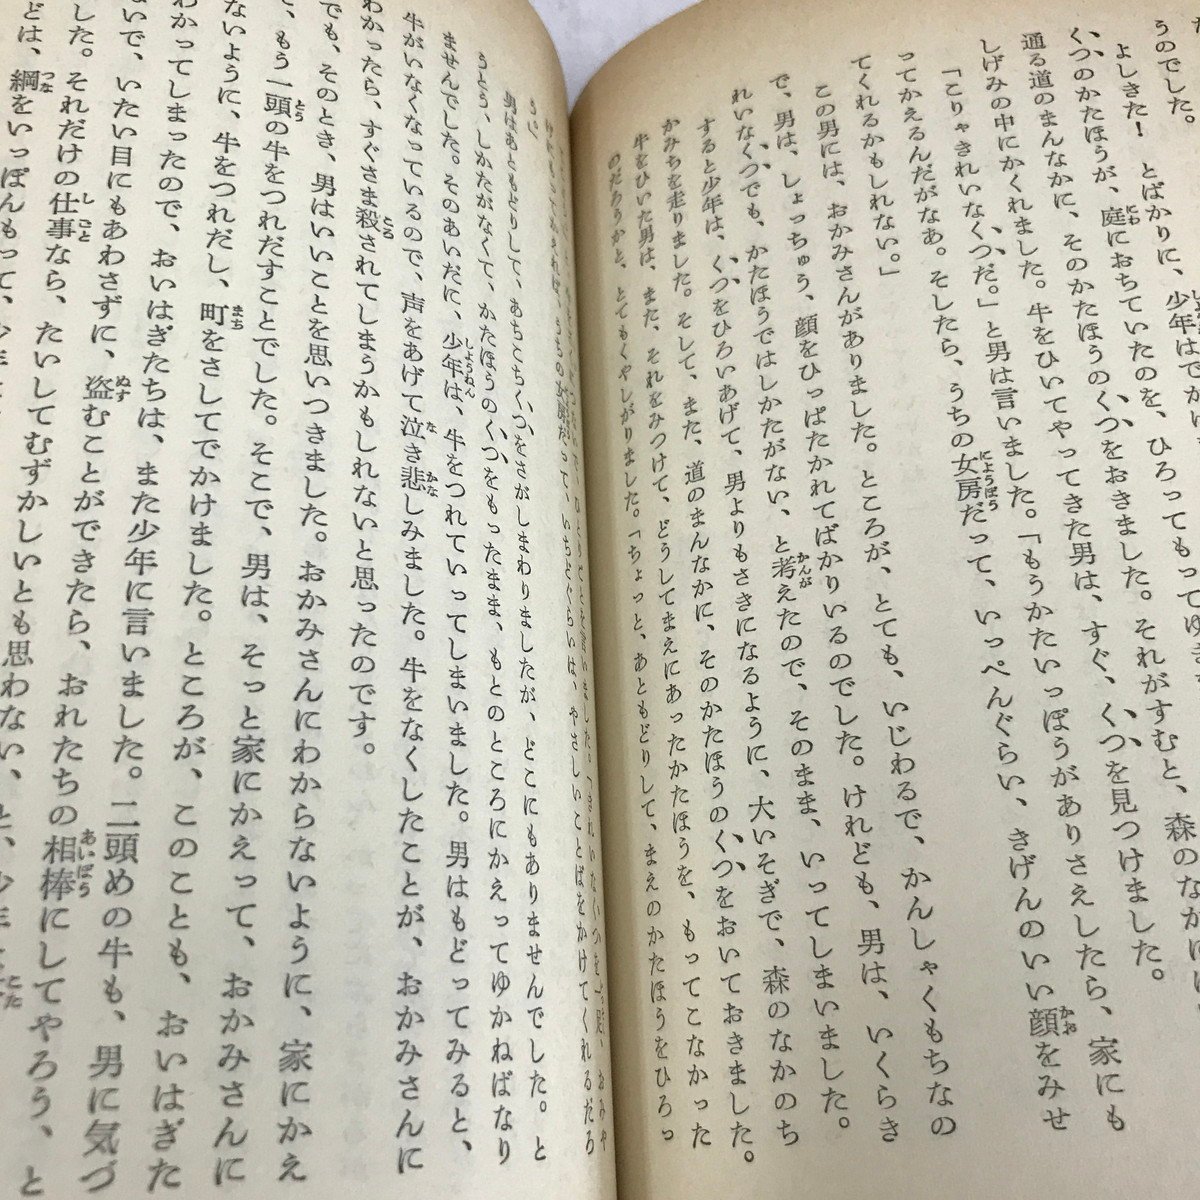 うのでした。
よしきた！　とばかりに、少年はでかけ
くつのかたほうが、庭におちていたのを、ひろってもってゆき
通る道のまんなかに、そのかたほうのくつをおきました。それがすむと、森のなかに
しげみの中にかくれました。牛をひいてやってきた男は、すぐ、くつを見つけました。
「こりゃきれいなくつだ。」と男は言いました。「もうかたいっぽうがありさえしたら、家にも
ってかえるんだがなあ。そしたら、うちの女房だって、いっぺんぐらい、きげんのいい顔をみせ
てくれるかもしれない。」
この男には、おかみさんがありました。ところが、とても、いじわるで、かんしゃくもちなの
で、男は、しょっちゅう、顔をひっぱたかれてばかりいるのでした。けれども、男は、いくらき
れいなくつでも、かたほうではしかたがない、と考えたので、そのまま、いってしまいました。
すると少年は、くつをひろいあげて、男よりもさきになるように、大いそぎで、森のなかのち
かみちを走りました。そして、また、道のまんなかに、そのかたほうのくつをおいておきました。
牛をひいた男は、また、それをみつけて、どうしてまえにあったかたほうを、もってこなかった
のだろうかと、とてもくやしがりました。「ちょっと、あともどりして、まえのかたほうをひろっ
うちの女房だって、いちどぐらいは、やさしいことばをかけてくれるだろ
う。」
男はあともどりして、あちこちくつをさがしまわりましたが、どこにもありませんでした。と
うとう、しかたがなくて、かたほうのくつをもったまま、もとのところにかえってゆかねばなり
ませんでした。そのあいだに、少年は、牛をつれていってしまいました。男はもどってみると、
牛がいなくなっているので、声をあげて泣き悲しみました。牛をなくしたことが、おかみさんに
わかったら、すぐさま殺されてしまうかもしれないと思ったのです。
でも、そのとき、男はいいことを思いつきました。おかみさんにわからないように、家にかえ
て、もう一頭の牛をつれだすことでした。そこで、男は、そっと家にかえって、おかみさんに
ないように、牛をつれだし、町をさしてでかけました。ところが、このことも、おいはぎた
わかってしまったので、おいはぎたちは、また少年に言いました。二頭めの牛も、男に気づ
ないで、いたい目にもあわさずに、盗むことができたら、おれたちの相棒にしてやろう、と
した。それだけの仕事なら、たいしてむずかしいとも思わない、と、少年
どは、綱をいっぽんもって、